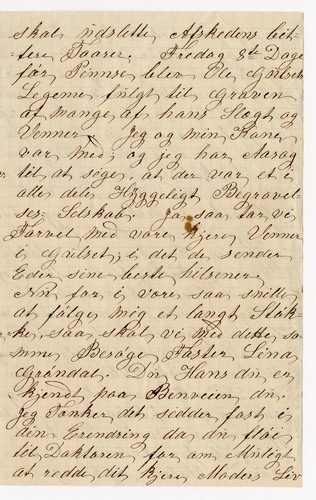 skal udslette Afskedens bit-
tere Taarer. Fredag 8de Dage
før Pinnse blev Ole
Legeme fulgt til Graven
af mange af hans Slægt og
Venner. Jeg og min Kone
var med, og jeg har Aarsag
til at sige, at der var et i
alle dele Hyggeligt Begravel-
ses-Selskab. Ja saa faar vi
Farvel med vore kjere Venner
i i det de sender
Eder sine beste hilsener.
Nu faar i være saa snille
at følge mig et langt Støk-
ke, saa skal vi med dette sa-
mme Besøge Faster Lina
Grøndal. Du Hans du er
kjendt paa Benveien du.
Jeg Tænker det sidder fast i
din Erendring da du fløi
til Doktoren for om Muligt
at redde dit kjere Moders Liv